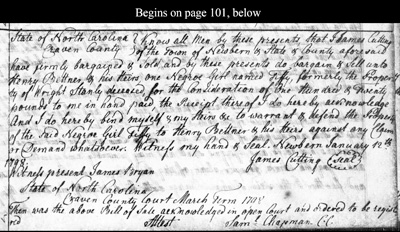 Begins on page 101, below
State of North Carolina } Know all Men by these presents that I James Cutting
Craven County } of the Town of Newbern & State & County aforesaid
have firmly bargained & Sold and by these presents do bargain & Sell unto
Henry Bettner, & his heirs one Negroe Girl named Tiffy, formerly the Property
of Wright Stanly deceased for the Consideration of One Hundred & twenty
pounds to me in hand paid, the Receipt thereof I do hereby acknowledge
And I do hereby bind myself & my Heirs &c to warrant & defend the Property
of the said Negroe Girl Tiffy to Henry Bettner & his heirs against any Claim
or Demand whatsoever. Witness my hand & Seal. Newbern January 12th
1798. James Cutting (Seal)
Witness present James Bryan
State of North Carolina
Craven County Court March Term 1798
Then was the above Bill of Sale acknowledged in open Court and ordered to be regist
ered Attest Saml. Chapman CC.